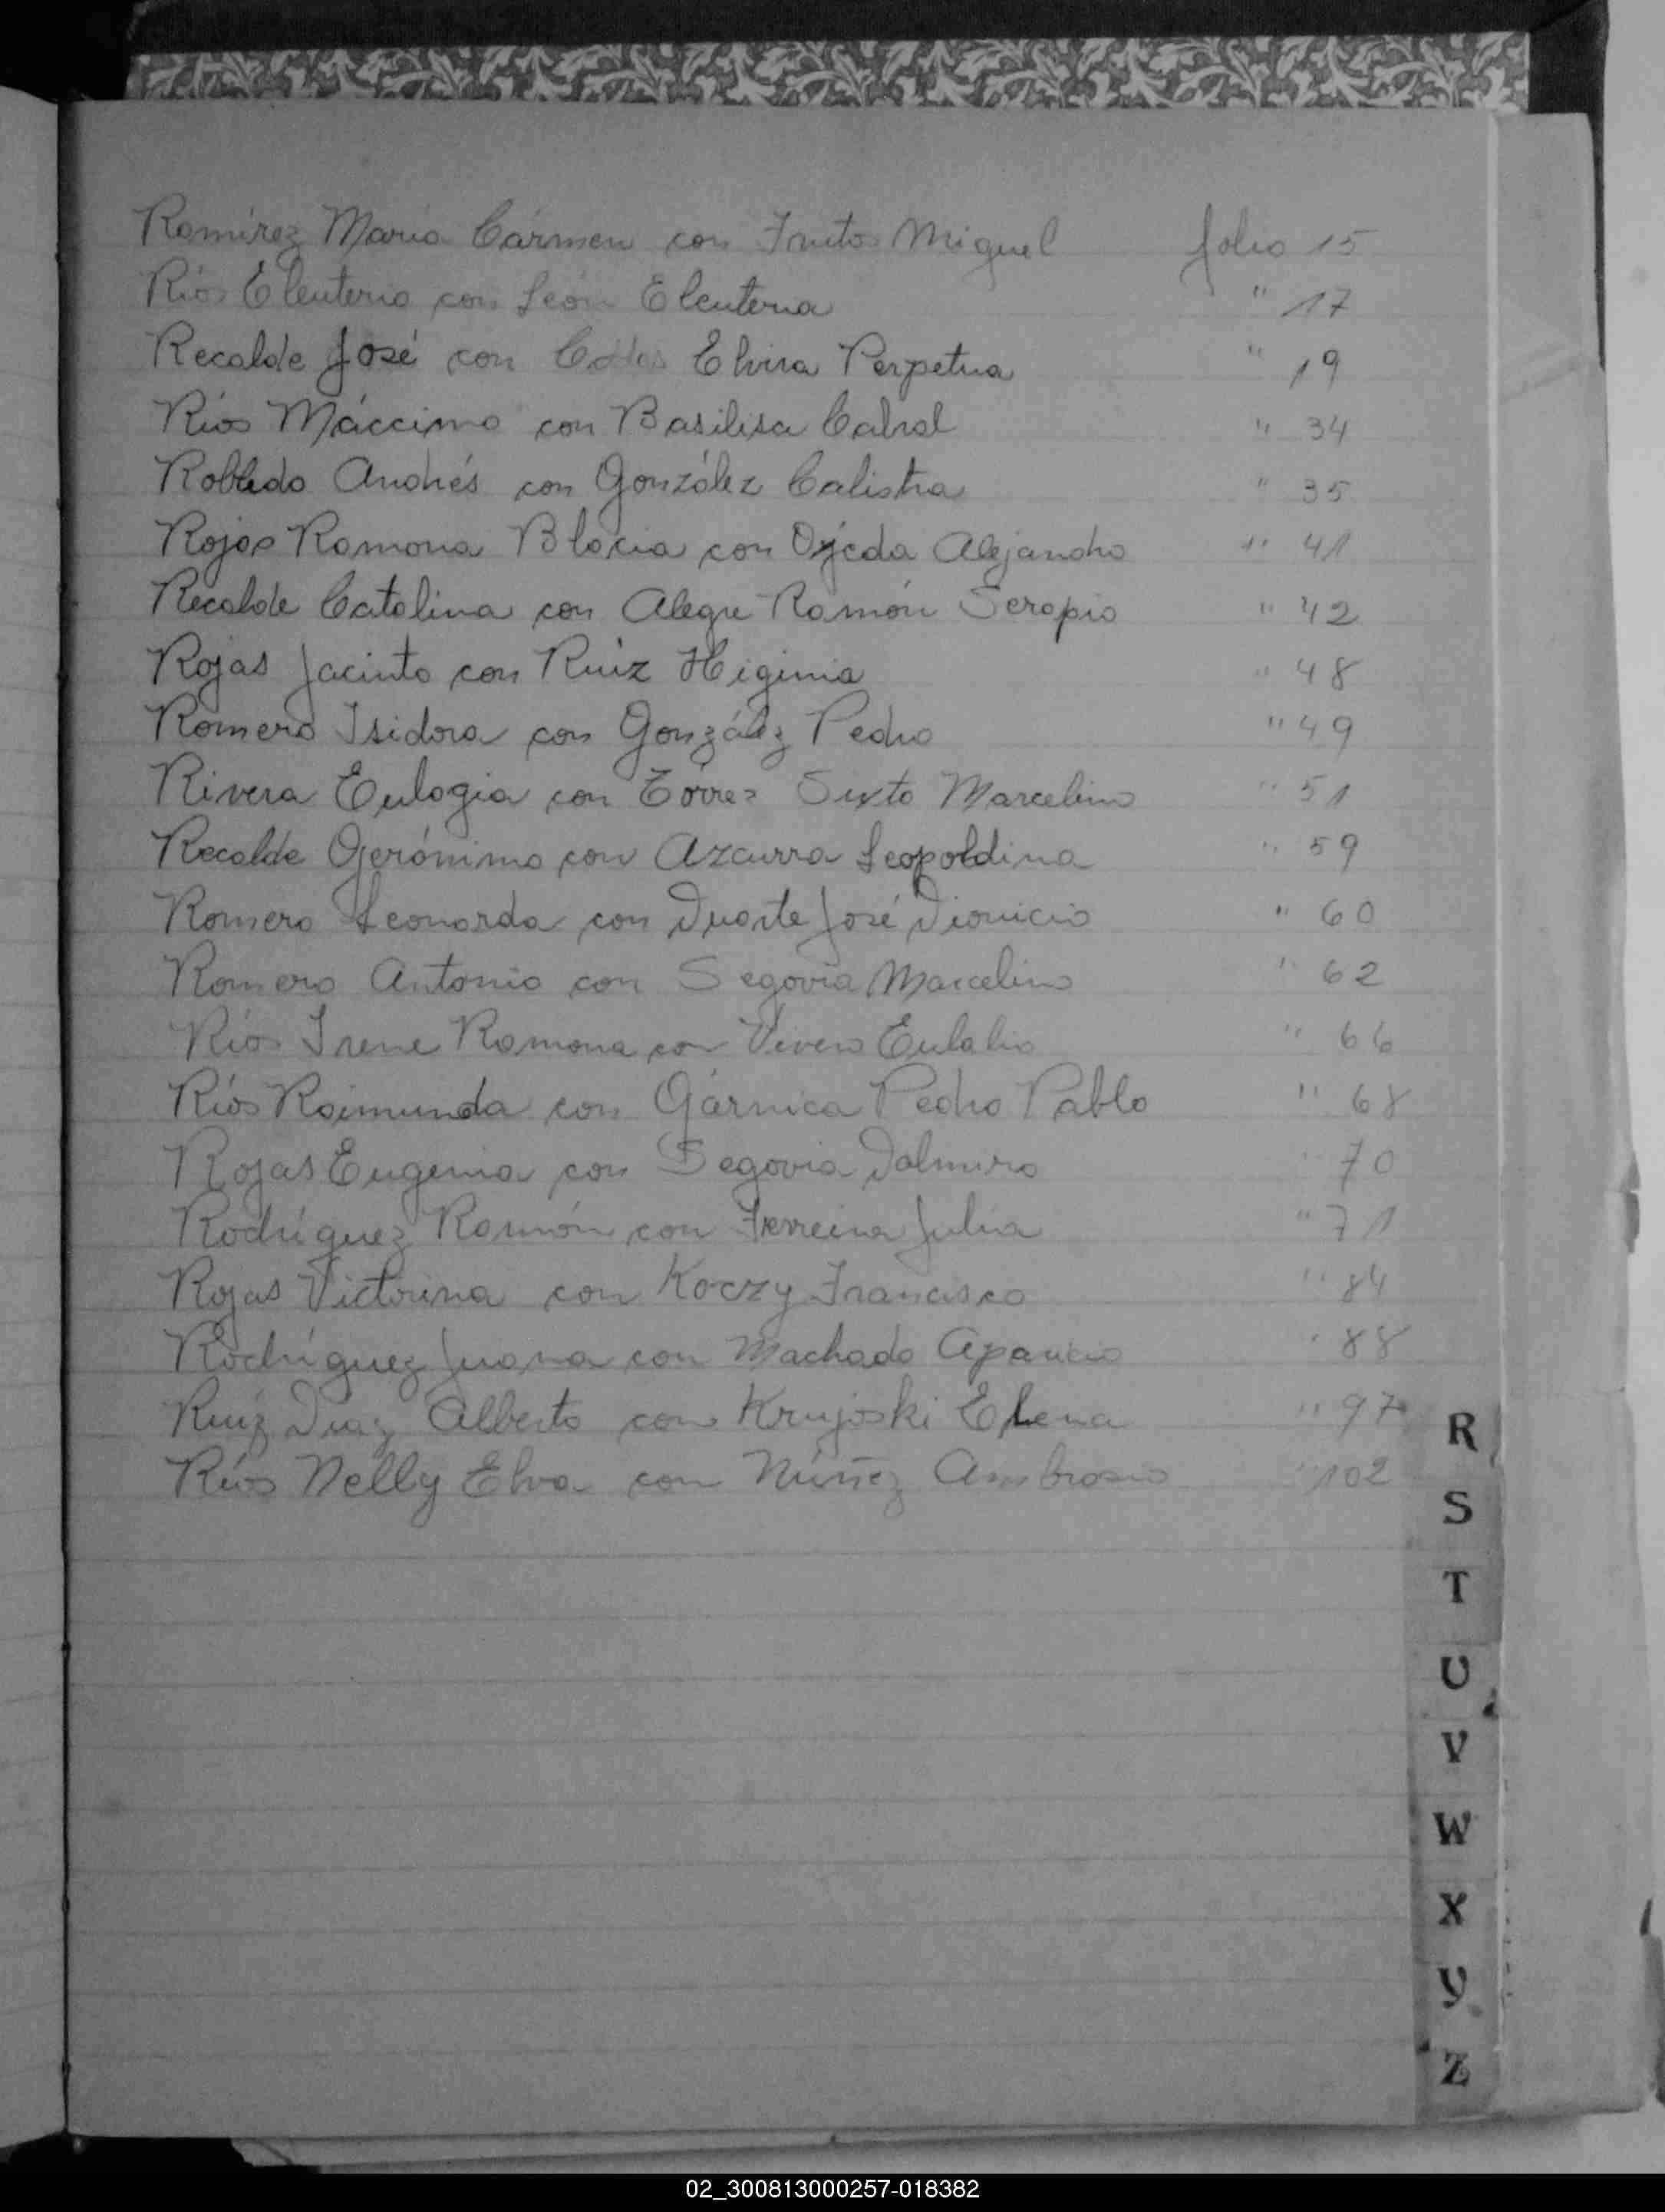 Ramírez María Cármen con Frutos Miguel folio 15
Ríos Eleuterio con León Eleuteria " 17
Recalde José con Elvira Perpetua " 19
Ríos Máccimo con Basilisa Cabral " 34
Robledo Andrés con González Calistra " 35
Rojas Ramona Blacia con Ojeda Alejandro " 41
Recalde Catalina con Alegre Ramón Serapio " 42
Rojas Jacinto con Ruiz Higinia " 48
Romero Isidora con González Pedro " 49
Rivera Eulogia con Tórres Sixto Marcelino " 51
Recalde Gerónimo con Azcurra Leopoldina " 59
Romero Leonarda con Duarte José Dionicio " 60
Romero Antonio con Segovia Marcelina " 62
Ríos Irene Ramona con Vivero Eulalio " 66
Ríos Raimunda con Gárnica Pedro Pablo " 68
Rojas Eugenia con Segovia Dalmiro " 70
Rodríguez Ramón con Ferreira Julia " 71
Rojas Victorina con Koczy Francisco " 84
Rodríguez Juana con Machado Aparicio " 88
Ruiz Diaz Alberto con Krujoski Elena " 97
Ríos Nelly Elva con Núñez Ambrosio " 102
R
S
T
U
V
W
X
Y
Z
02_300813000257-018382